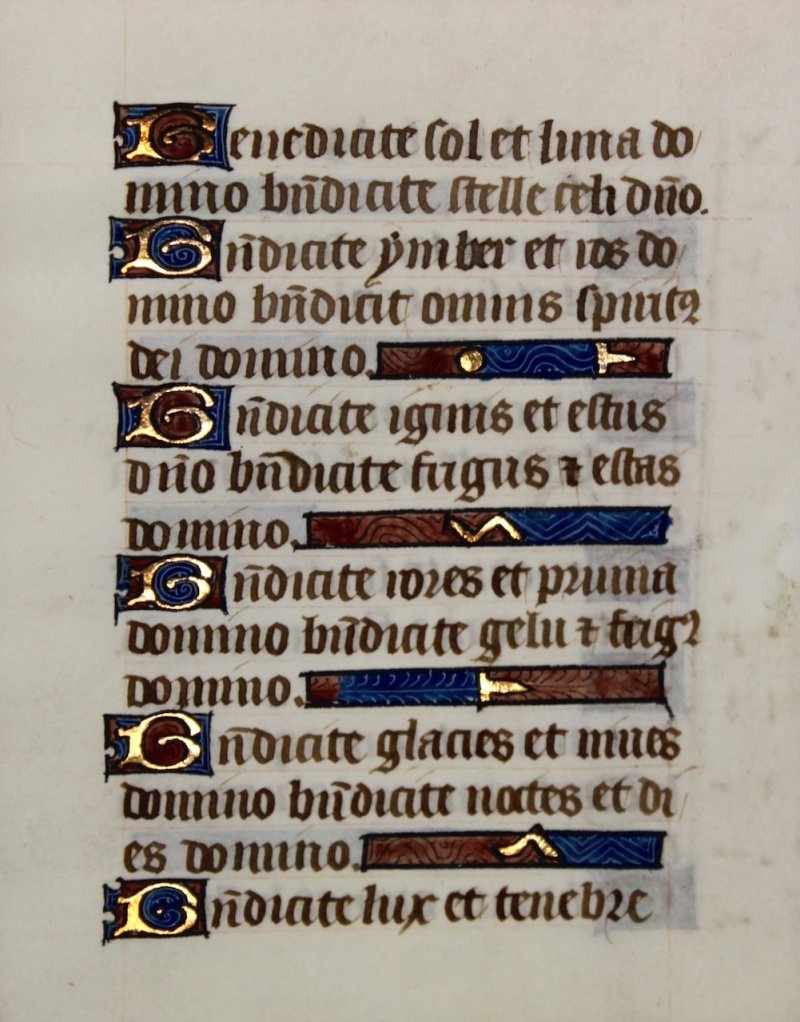 Benedicite sol et luna do
mino bn̄dicite stelle celi dn̄o.
Bn̄dicite ymber et ros do
mino bn̄dicit omnis spiritꝯ
dei domino.
Bn̄dicite ignis et estus
dn̄o bn̄dicite frigus ⁊ estas
domino.
Bn̄dicite rores et pruina
domino bn̄dicite gelu ⁊ frigꝯ
domino.
Bn̄dicite glacies et niues
domino bn̄dicite noctes et di
es domino.
Bn̄dicite lux et tenebre